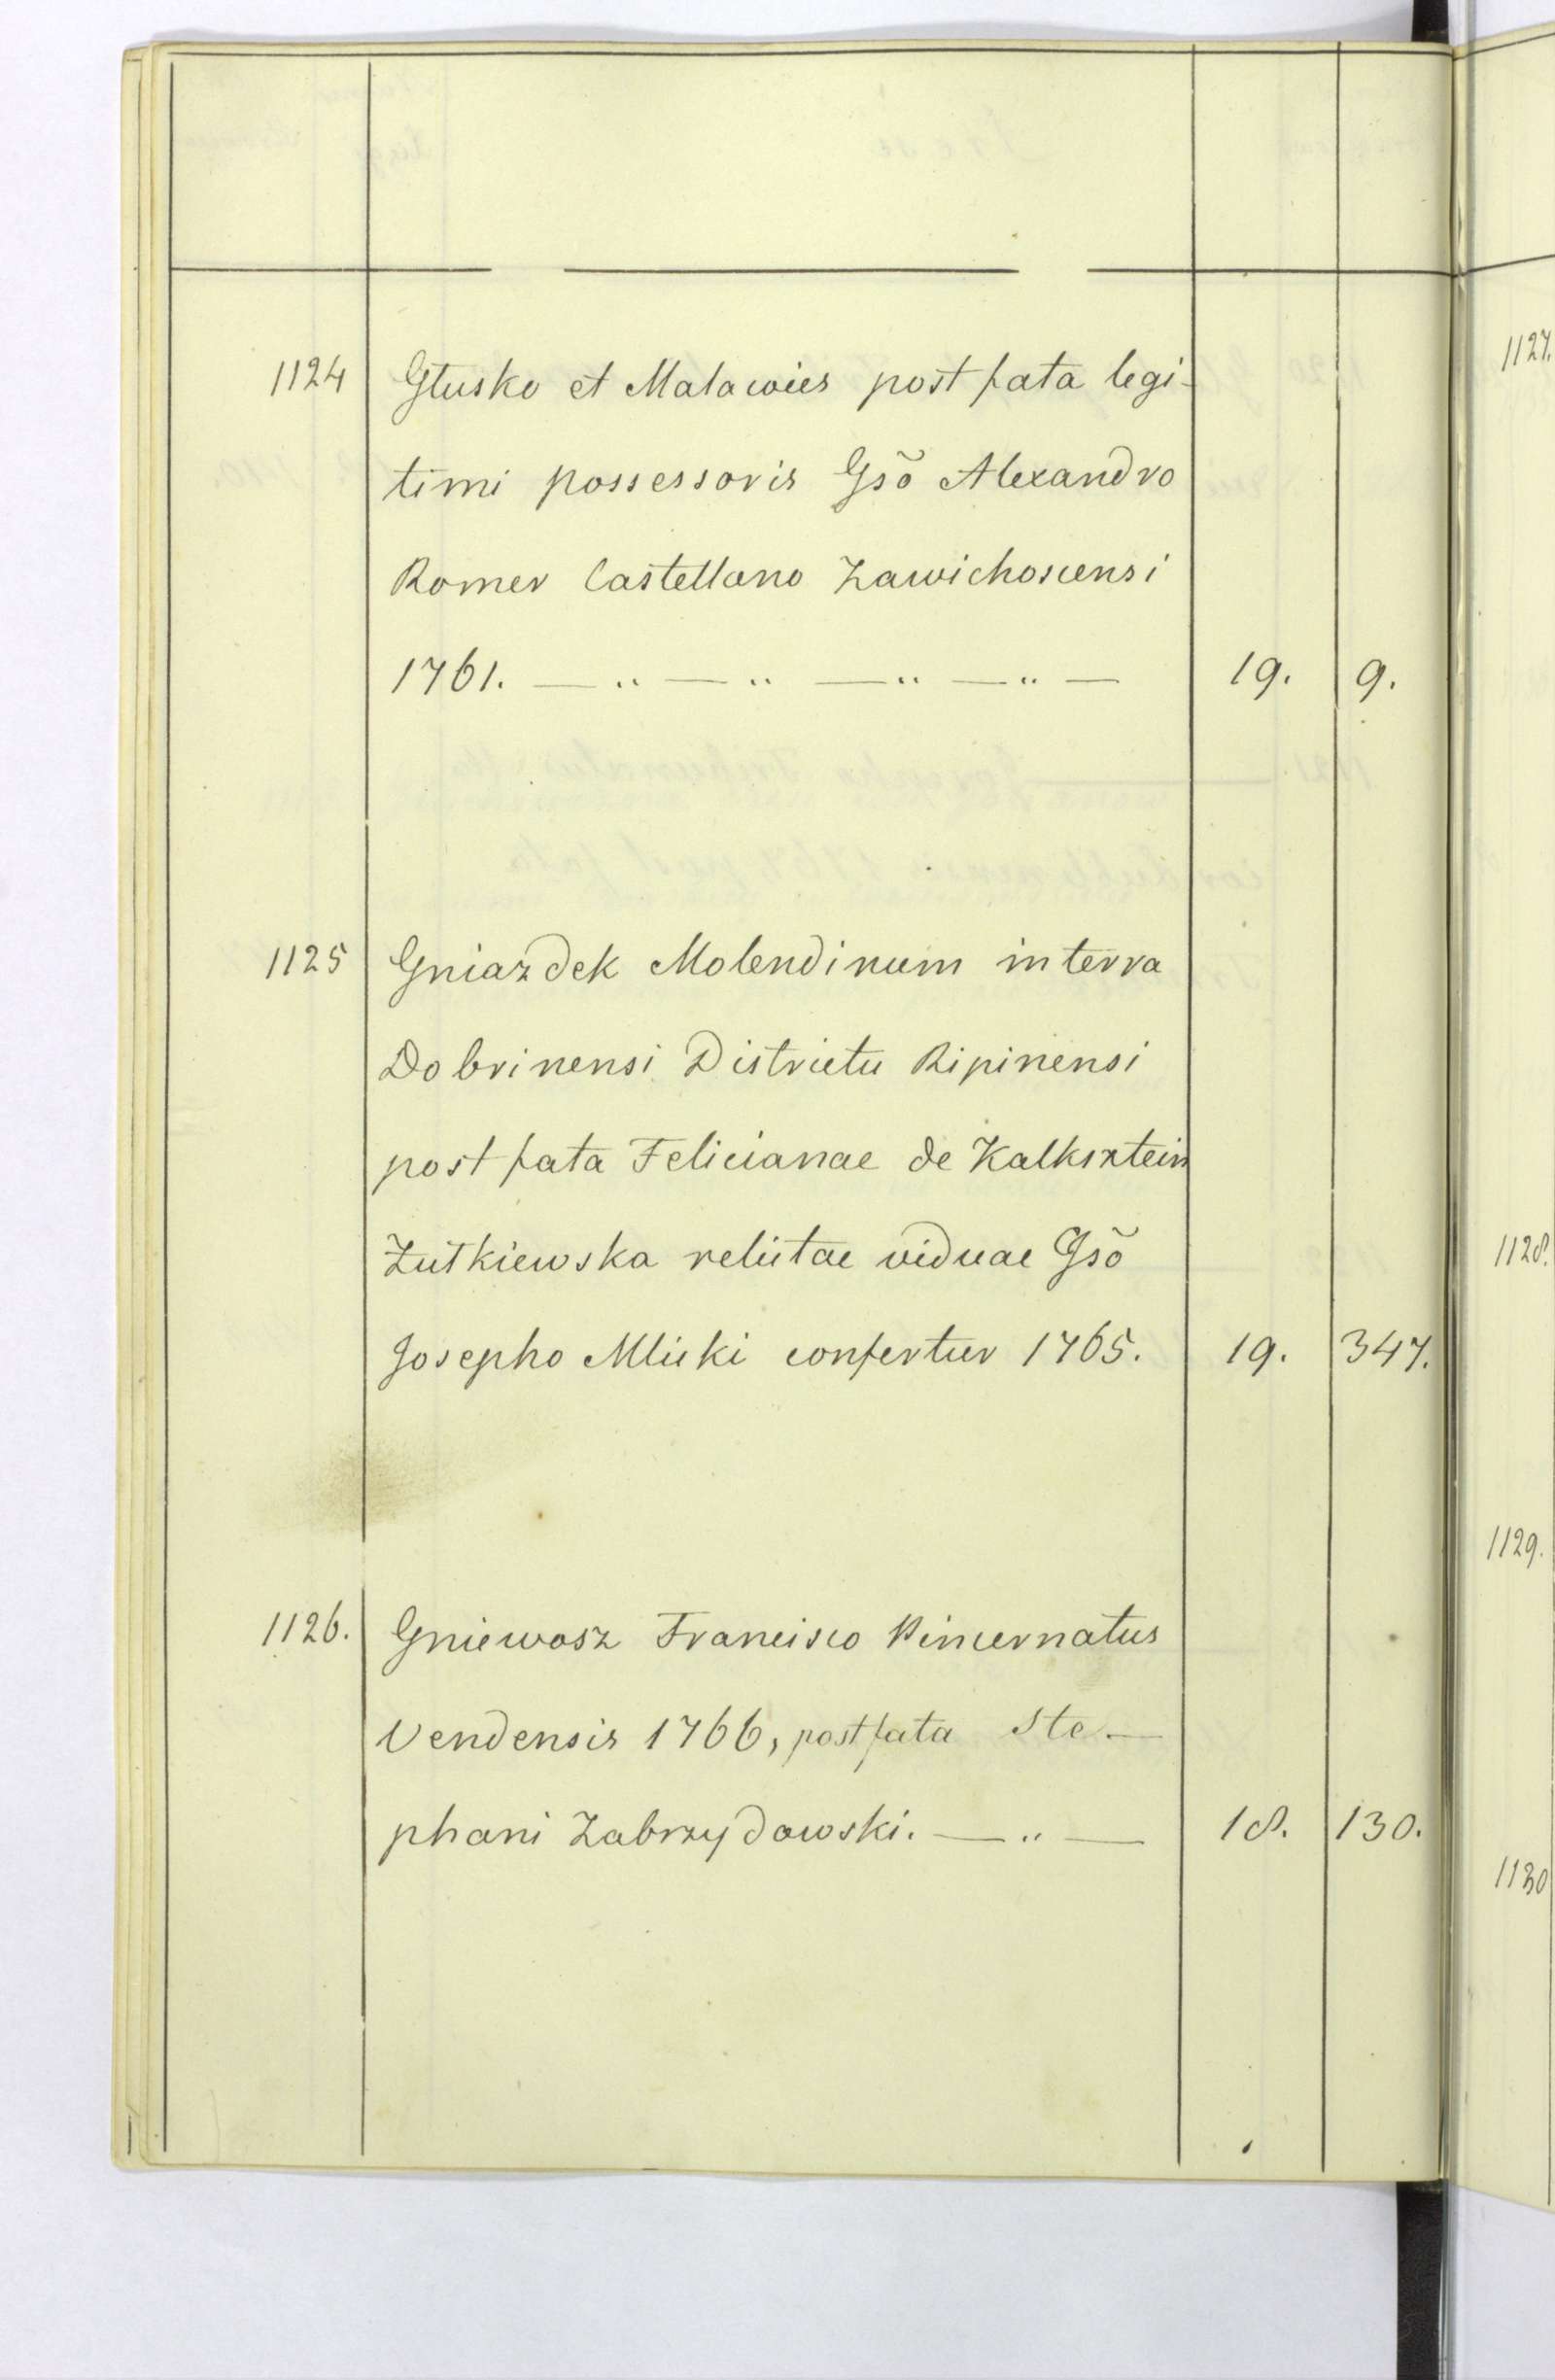 1124 Głusko et Malawies post fata legi-
timi possessoris Gsõ Alexandro
Romer Castellano Zawichoscensi
1761. — " — " — " — " — 19. 9.
1125 Gniazdek Molendinum in terra
Dobrinensi Districtu Ripinensi
post fata Felicianae de Kalksztein
Żutkiewska relictae viduae Gsõ
Josepho Mlicki confertur 1765. 19. 347.
1126. Gniewosz Francisco Pincernatus
Vendensis 1766, post fata Ste-
phani Zabrzydowski. — " — 18. 130.
1127.
1128.
1129.
1130